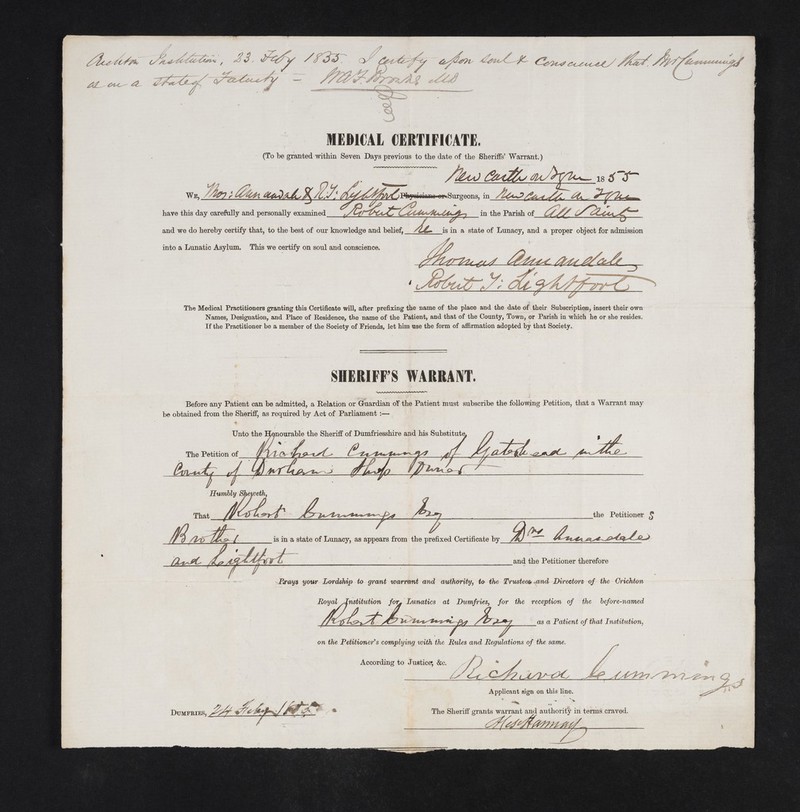 Crichton Institution, 23 Feby 1855 I certify upon soul & conscience that Mr Cummings
is in a state of Fatuity – W.A.F. Browne MD
MEDICAL CERTIFICATE.
(To be granted within Seven Days previous to the date of the Sheriffs' Warrant.)
New castle on Tyne 1855
We, Thos: Annandale & R. J: Lightfoot Physicians or Surgeons, in New castle on Tyne
have this day carefully and personally examined Robert Cummings in the Parish of All Saints
and we do hereby certify that, to the best of our knowledge and belief, he is in a state of Lunacy, and a proper object for admission
into a Lunatic Asylum. This we certify on soul and conscience.
Thomas Annandale
Robert J: Lightfoot
The Medical Practitioners granting this Certificate will, after prefixing the name of the place and the date of their Subscription, insert their own
Names, Designation, and Place of Residence, the name of the Patient, and that of the County, Town, or Parish in which he or she resides.
If the Practitioner be a member of the Society of Friends, let him use the form of affirmation adopted by that Society.
SHERIFF'S WARRANT.
Before any Patient can be admitted, a Relation or Guardian of the Patient must subscribe the following Petition, that a Warrant may
be obtained from the Sheriff, as required by Act of Parliament :—
Unto the Honourable the Sheriff of Dumfriesshire and his Substitute,
The Petition of Richard Cummings of Gateshead in the
County of Durham Ship Owner
Humbly Sheweth,
That Robert Cummings Esq the Petitioner s
Brother is in a state of Lunacy, as appears from the prefixed Certificate by Drs Annandale
and Lightfoot and the Petitioner therefore
Prays your Lordship to grant warrant and authority, to the Trustees and Directors of the Crichton
Royal Institution for Lunatics at Dumfries, for the reception of the before-named
Robert Cummings Esq as a Patient of that Institution,
on the Petitioner's complying with the Rules and Regulations of the same.
According to Justice, &c.
Richard Cummings
Applicant sign on this line.
Dumfries, 24 Feby 1855
The Sheriff grants warrant and authority in terms craved.
Hannay